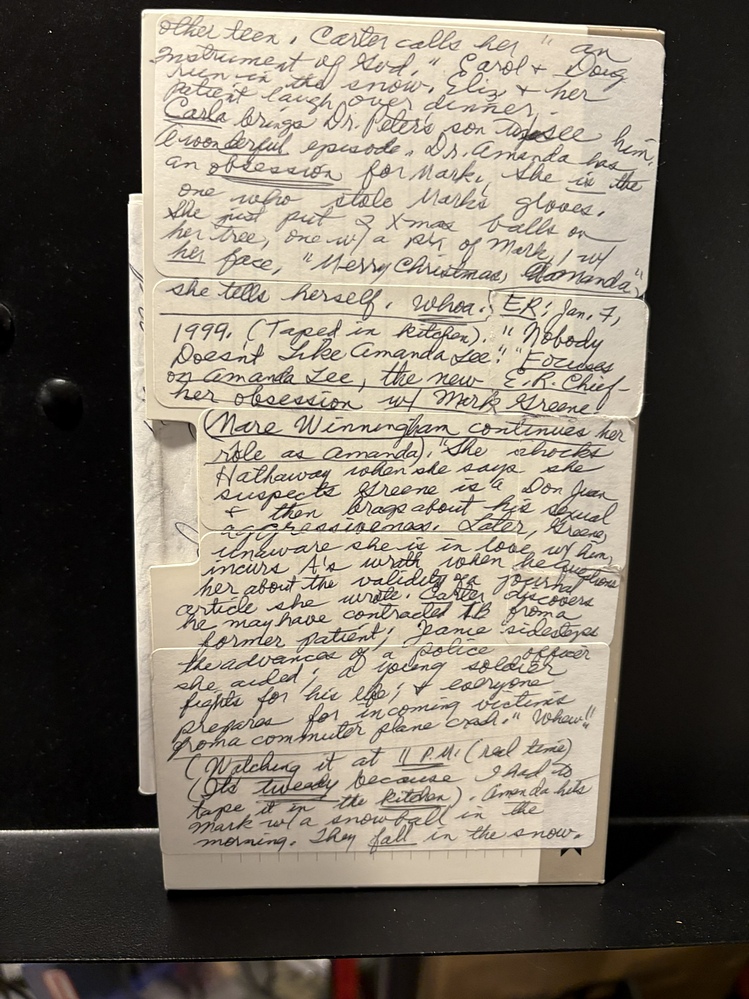 other teen. Carter calls her "an
instrument of God." Carol + Doug
run in the snow. Eliz. + her
patient laugh over dinner.
Carla brings Dr. Peter's son to see him.
A wonderful episode. Dr. Amanda has
an obsession for Mark. She is the
one who stole Mark's gloves.
She just put 2 Xmas balls on
her tree, one w/ a pix of Mark, 1 w/
her face, "Merry Christmas, Amanda,"
she tells herself. Whoa. ER: Jan. 7,
1999. (Taped in kitchen). "Nobody
Doesn't Like Amanda Lee." "Focuses
on Amanda Lee, the new E.R. Chief-
her obsession w/ Mark Greene
(Mare Winningham continues her
role as Amanda). "She shocks
Hathaway when she says she
suspects Greene is a Don Juan
+ then brags about his sexual
aggressiveness. Later, Greene,
unaware she is in love w/ him,
incurs A's wrath when he questions
her about the validity of a journal
article she wrote. Carter discovers
he may have contracted TB from a
former patient; Jeanie sidesteps
the advances of a police officer
she aided; a young soldier
fights for his life; + everyone
prepares for incoming victims
from a commuter plane crash." Whew!!
(Watching it at 11 P.M. (real time)
(It's tweedy because I had to
tape it in the kitchen). Amanda hits
Mark w/ a snowball in the
morning. They fall in the snow.